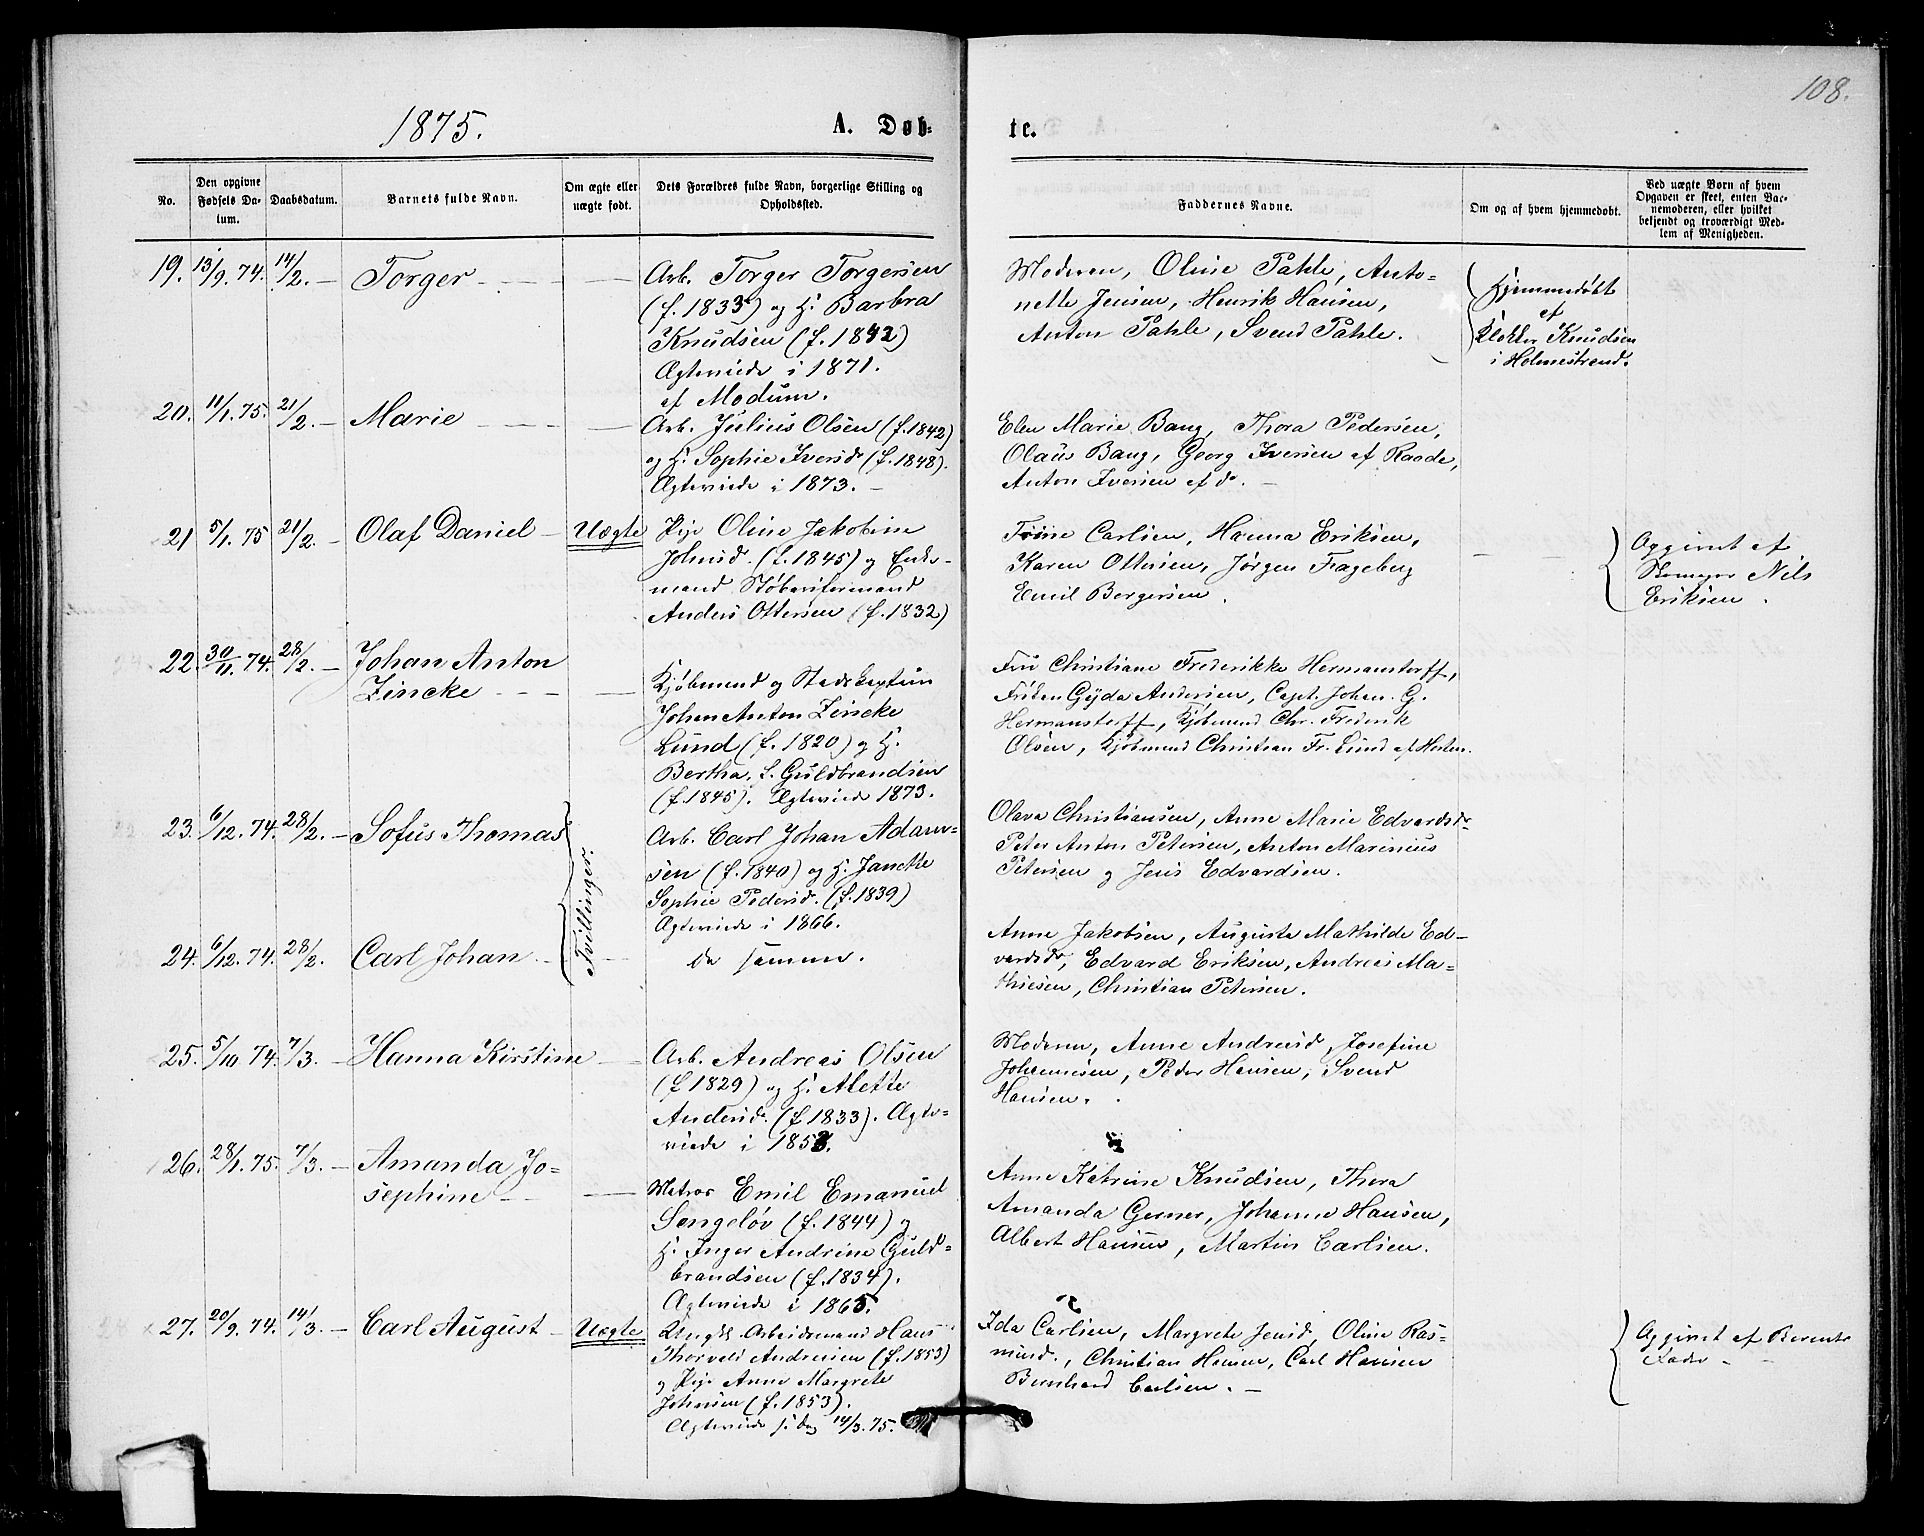 108.
1875.
A. Døb-
te.
No.
Den opgivne Fødsels Da-
tum.
Daabsdatum.
Barnets fulde Navn.
Om ægte eller
uægte født.
Dets Forældres fulde Navn, borgerlige Stilling og
Opholdssted.
Faddernes Navne.
Om og af hvem hjemmedøbt.
Ved uægte Børn af hvem
Opgaven er skeet, enten Bar-
nemoderen, eller hvilket
bekjendt og troværdigt Med-
lem af Menigheden.
19. 13/9. 74. 14/2. — Torger
Arb. Torger Torgersen
(f. 1833) og H. Barbra
Knudsen (f. 1842)
Ægteviede i 1871.
af Modum.
Moderen, Oline Pahle, Anto-
nette Jensen, Henrik Hansen,
Anton Pahle, Svend Pahle.
Hjemmedøbt
af
Klokker Knudsen
i Holmestrand.
20. 11/1. 75. 21/2. — Marie
Arb. Julius Olsen (f. 1842)
og H. Sophie Iversd. (f. 1848).
Ægteviede i 1873. —
Elen Marie Bang, Thora Pedersen,
Olaus Bang, Georg Iversen af Raade,
Anton Iversen af do. —
21 5/1. 75 21/2. — Olaf Daniel — Uægte
Pige Oline Jakobine
Johnsd. (f. 1845) og Enke-
mand Støberiformand
Anders Ottersen (f. 1832)
Trine Carlsen, Hanna Eriksen,
Karen Ottersen, Jørgen Fageberg
Emil Borgersen.
Opgivet af
Nils
Eriksen.
22. 30/11. 74. 28/2. — Johan Anton
Zincke
Kjøbmand og Stadskaptein
Johan Anton Zincke
Lund (f. 1820) og H.
Bertha, f. Guldbrandsen
(f. 1845). Ægteviede 1873.
Fru Christiane Frederikke Hermanstorff,
Frøken Gyda Andersen, Capt. Johan G.
Hermanstorff, Kjøbmand Chr. Frederik
Olsen, Kjøbmand Christian Fr. Lund af Horten.
23. 6/12. 74. 28/2. — Sofus Thomas
Tvillinger.
Arb. Carl Johan Adam-
sen (f. 1840) og H. Janette
Sophie Pedersd. (f. 1839)
Ægteviede i 1866.
Olava Christiansen, Anne Marie Edvardsdr
Peter Anton Petersen, Anton Marinius
Petersen og Jens Edvardsen.
24. 6/12. 74. 28/2. Carl Johan
de samme.
Anne Jakobsen, Augusta Mathilde Ed-
vardsdr, Edvard Eriksen, Andreas Ma-
thiesen, Christian Petersen.
25. 5/10 74. 7/3. — Hanna Kirstine
Arb. Andreas Olsen
(f 1829) og H. Alette
Andersd. (f 1833). Ægte-
viede i 1853.
Moderen, Anne Andreasd, Josefine
Johannesen, Peder Hansen, Svend
Hansen.
26. 28/1. 75. 7/3. — Amanda Jo-
sephine
Matros Emil Emanuel
Sengeløv (f. 1844) og
H. Inger Andrine Guld-
brandsen (f. 1834).
Ægteviede i 1865.
Anne Katrine Knudsen, Thora
Amanda Gerner, Johanne Hansen,
Albert Hansen, Martin Carlsen.
27. 20/9. 74. 14/3. — Carl August — Uægte
Ungk. Arbeidsmand Hans
Thorvald Andresen (f. 1853)
og Pige Anne Margrete
Johnsen (f. 1853).
Ægteviede i dag 14/3. 75.
Ida Carlsen, Margrete Jensd, Oline Ras-
musd., Christian Hansen, Carl Hansen
Bernhard Carlsen. —
Opgivet af Barnets
Fader